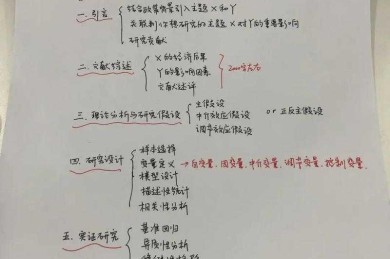 一.引言
结合政策背景引入主题X和Y
关联到你想研究的主题X对Y的重要影响
研究贡献
二.文献综述
X的经济后果
Y的影响因素
文献述评
2000字左右
三.理论分析与研究假设
主假设
中介效应假设
调节效应假设
or 正反主假设
四.研究设计
样本选择
变量定义 → 自变量、因变量、中介变量、调节变量、控制变量
模型设计
描述性统计
相关性分析
五.实证研究
基准回归
异质性分析